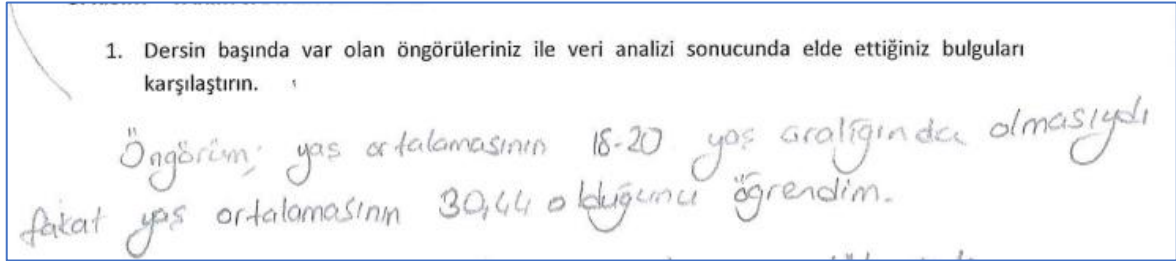 1. Dersin başında var olan öngörüleriniz ile veri analizi sonucunda elde ettiğiniz bulguları
karşılaştırın.
Öngörüm; yaş ortalamasının 18-20 yaş aralığında olmasıydı
fakat yaş ortalamasının 30,44 olduğunu öğrendim.